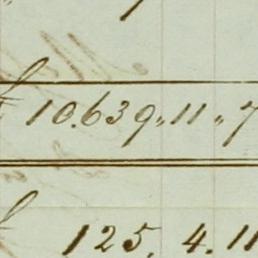 £ 10.639,, 11,, 7
£ 125, 4. 11